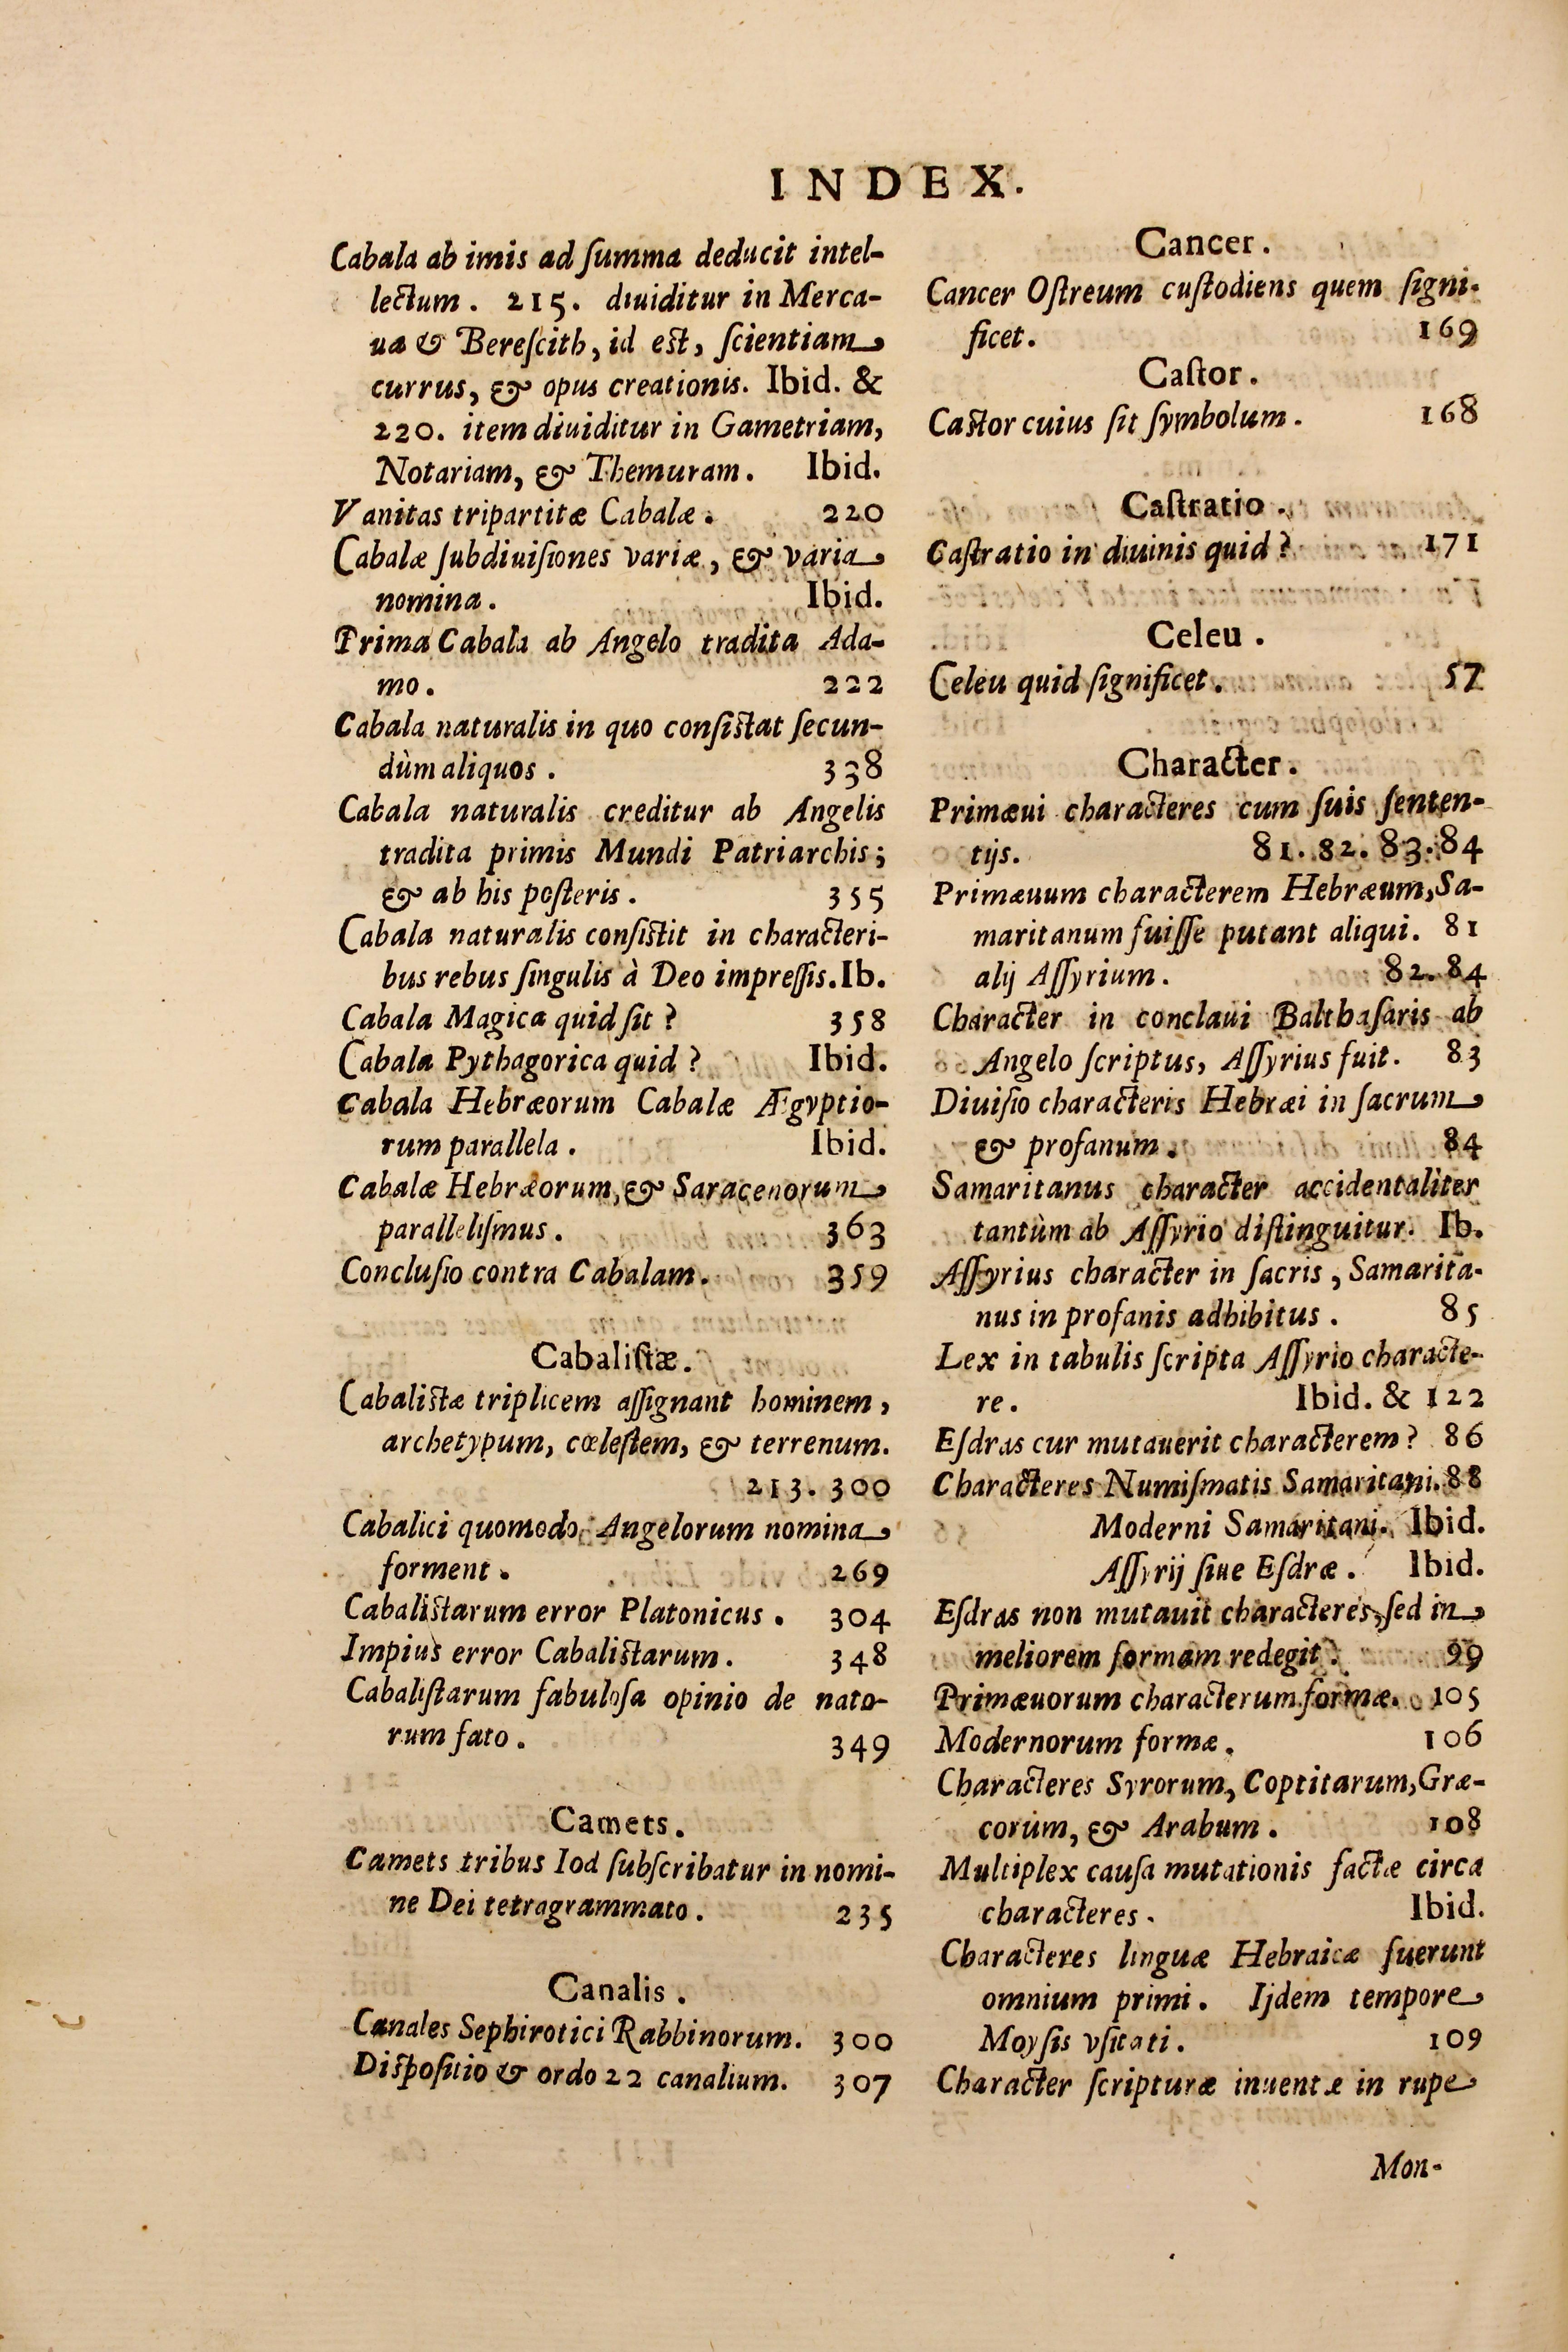 INDEX.
Cabala ab imis ad ſumma deducit intel-
lectum. 215. diuiditur in Merca-
ua & Bereſcith, id est, ſcientiam
currus, & opus creationis. Ibid. &
220. item diuiditur in Gametriam,
Notariam, & Themuram. Ibid.
Vanitas tripartitæ Cabalæ. 220
Cabalæ ſubdiuiſiones variæ, & varia
nomina. Ibid.
Prima Cabala ab Angelo tradita Ada-
mo. 222
Cabala naturalis in quo conſistat ſecun-
dùm aliquos. 338
Cabala naturalis creditur ab Angelis
tradita primis Mundi Patriarchis;
& ab his poſteris. 355
Cabala naturalis conſistit in characteri-
bus rebus ſingulis à Deo impreſſis. Ib.
Cabala Magica quid ſit? 358
Cabala Pythagorica quid? Ibid.
Cabala Hebræorum Cabalæ Ægyptio-
rum parallela. Ibid.
Cabalæ Hebræorum, & Saracenorum
paralleliſmus. 363
Concluſio contra Cabalam. 359
Cabaliſtæ.
Cabalistæ triplicem aſſignant hominem,
archetypum, cœleſtem, & terrenum.
213. 300
Cabalici quomodo Angelorum nomina
forment. 269
Cabalistarum error Platonicus. 304
Impius error Cabalistarum. 348
Cabaliſtarum fabuloſa opinio de nato-
rum fato. 349
Camets.
Camets tribus Iod ſubſcribatur in nomi-
ne Dei tetragrammato. 235
Canalis.
Canales Sephirotici Rabbinorum. 300
Diſpoſitio & ordo 22 canalium. 307
Cancer.
Cancer Oſtreum cuſtodiens quem ſigni-
ficet. 169
Caſtor.
Castor cuius ſit ſymbolum. 168
Caſtratio.
Caſtratio in diuinis quid? 171
Celeu.
Celeu quid ſignificet. 57
Character.
Primæui characteres cum ſuis ſenten-
tijs. 81. 82. 83. 84
Primæuum characterem Hebræum, Sa-
maritanum fuiſſe putant aliqui. 81
alij Aſſyrium. 82. 84
Character in conclaui Balthaſaris ab
Angelo ſcriptus, Aſſyrius fuit. 83
Diuiſio characteris Hebræi in ſacrum
& profanum. 84
Samaritanus character accidentaliter
tantùm ab Aſſyrio diſtinguitur. Ib.
Aſſyrius character in ſacris, Samarita-
nus in profanis adhibitus. 85
Lex in tabulis ſcripta Aſſyrio characte-
re. Ibid. & 122
Eſdras cur mutauerit characterem? 86
Characteres Numiſmatis Samaritani. 88
Moderni Samaritani. Ibid.
Aſſyrij ſiue Eſdræ. Ibid.
Eſdras non mutauit characteres, ſed in
meliorem formam redegit. 99
Primæuorum characterum formæ. 105
Modernorum formæ. 106
Characteres Syrorum, Coptitarum, Græ-
corum, & Arabum. 108
Multiplex cauſa mutationis factæ circa
characteres. Ibid.
Characteres linguæ Hebraicæ fuerunt
omnium primi. Ijdem tempore
Moyſis vſitati. 109
Character ſcripturæ inuentæ in rupe
Mon-